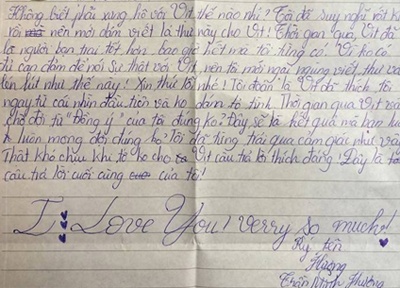 Không biết phải xưng hô với Vịt thế nào nhỉ! Tớ đã suy nghĩ rất k
rồi nên mới dám viết lá thư này cho Vịt! Thời gian qua, Vịt đã
là người bạn trai tốt hơn bao giờ hết mà tớ từng có. Vì ko có
tử can đảm để nói sự thật với Vịt, nên tớ mới ngại ngùng viết thư và
lén lút như thế này! Xin thứ lỗi nhé! Tôi đoán là Vịt đã thích tôi
ngay từ cái nhìn đầu tiên và ko dám tỏ tình. Thời gian qua Vịt vẫ
chờ đợi từ "Đồng ý" của tớ đúng ko? Đây sẽ là kết quả mà bạn lu
luôn mong đợi đúng ko? Tôi đã từng trải qua cảm giác như vậ
Thật khó chịu khi tớ ko cho Vịt câu trả lời thích đáng! Đây là
câu trả lời cuối cùng của tớ!
I Love You! Verry so much!
Ký tên
Hương
Trần Minh Phương